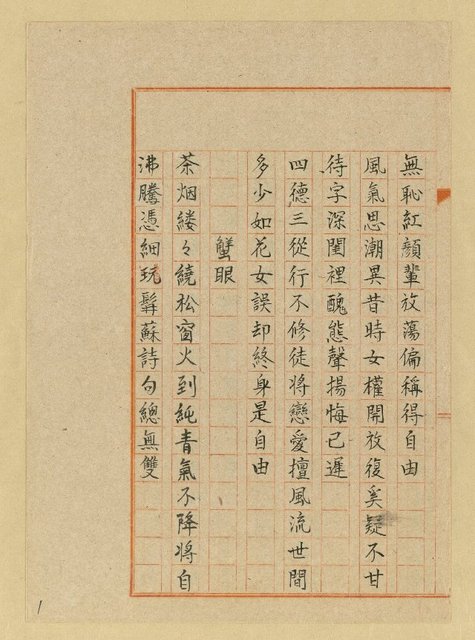 無恥紅顏輩放蕩偏稱得自由
風氣思潮異昔時女權開放復奚疑不甘
待字深閨裡醜態聲揚悔已遲
四德三從行不修徒將戀愛擅風流世間
多少如花女誤却終身是自由
蟹眼
茶烟縷々繞松窗火到純青氣不降將自
沸騰憑細玩髯蘇詩句總無雙
1